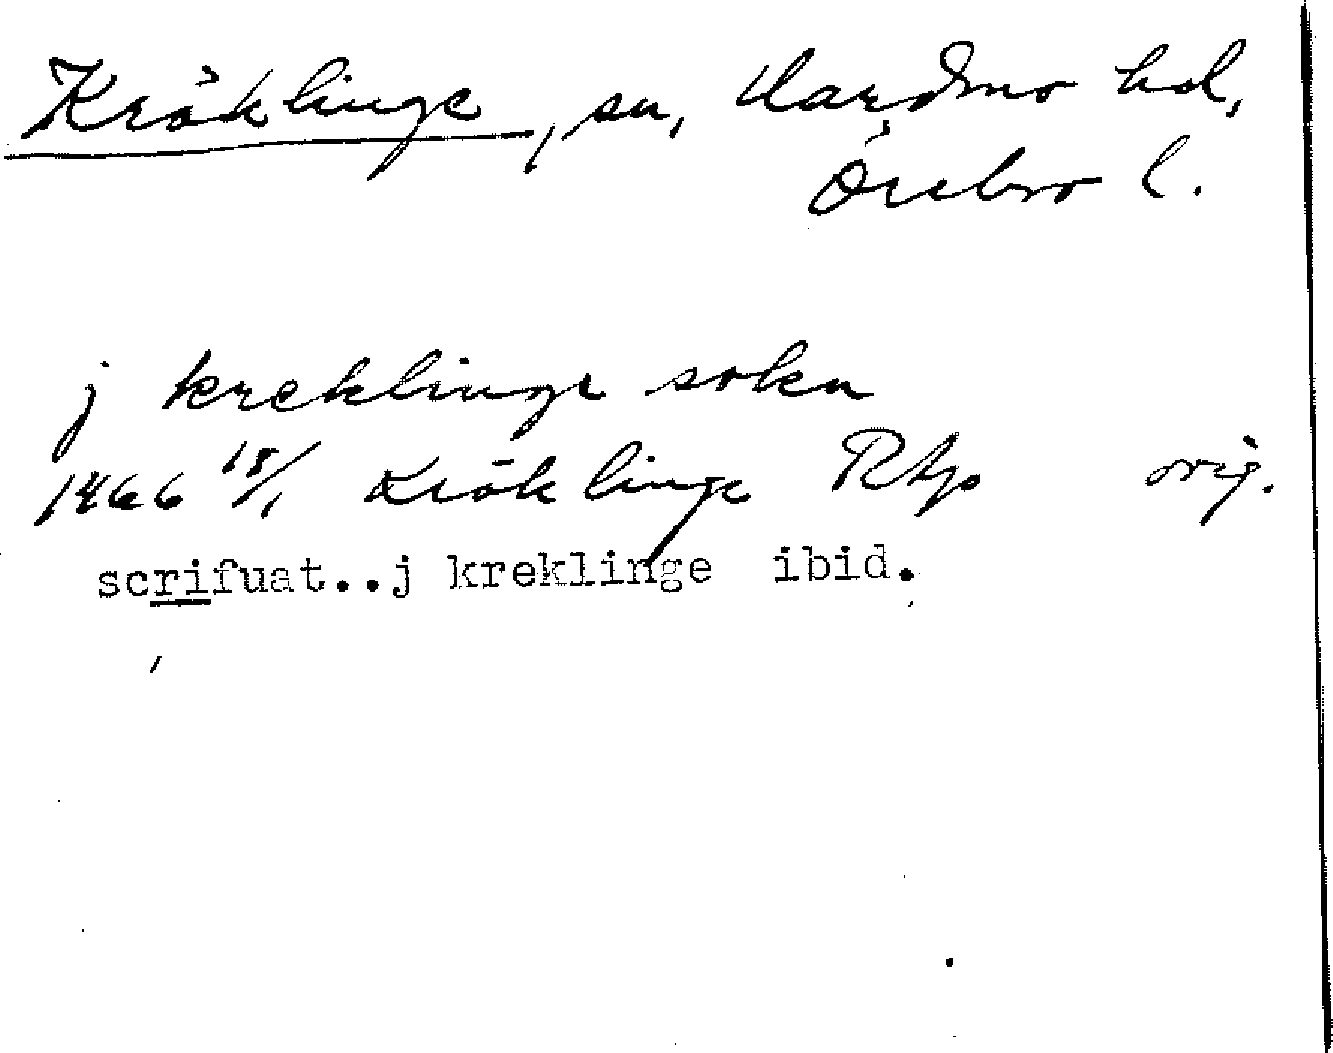 Kräklinge, sn, Hardemo hd,
Örebro l.
j kreklinge sokn
1466 18/1 Kräklinge RAp orig.
scrifuat..j kreklinge ibid.